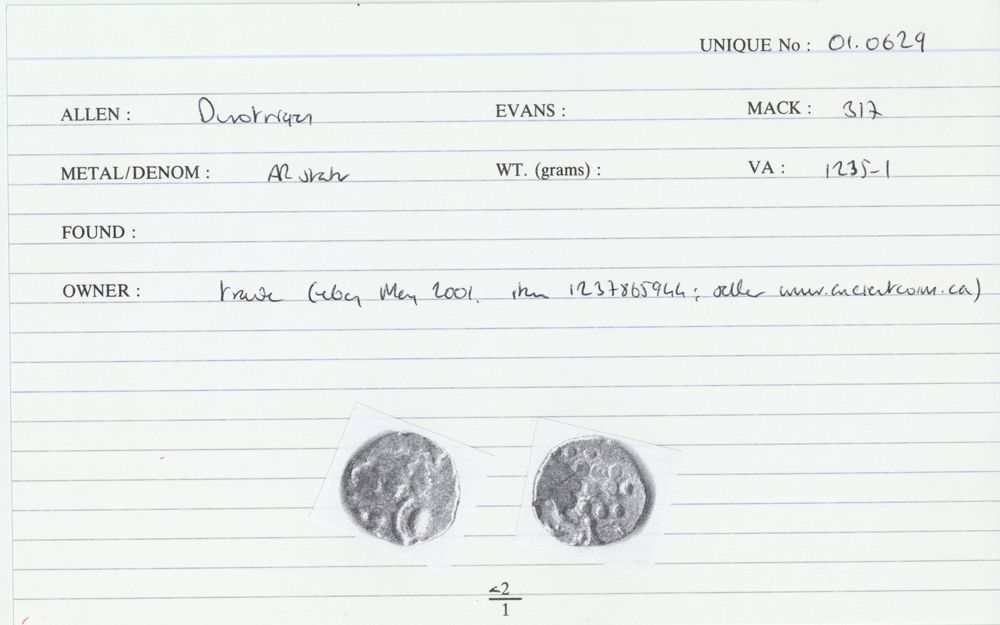 UNIQUE No : 01.0629
ALLEN : Durotrigan EVANS : MACK : 317
METAL/DENOM : AR stater WT. (grams) : VA : 1235-1
FOUND :
OWNER : trade (eBay May 2001, item 1237865944; seller www.ancientcoins.ca)
<2
1